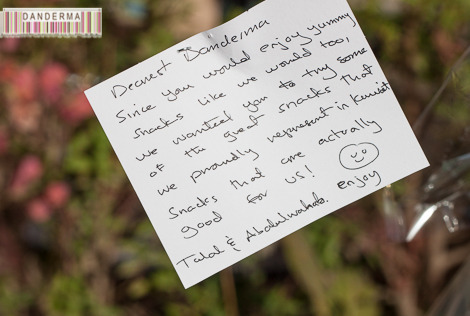 DANDERMA
Dearest Danderma
Since you would enjoy yummy
snacks like we would too,
we wanted you to try some
of the great snacks that
we proudly represent in Kuwait
snacks that are actually
good for us!
enjoy
Talal & Abdulwahab.